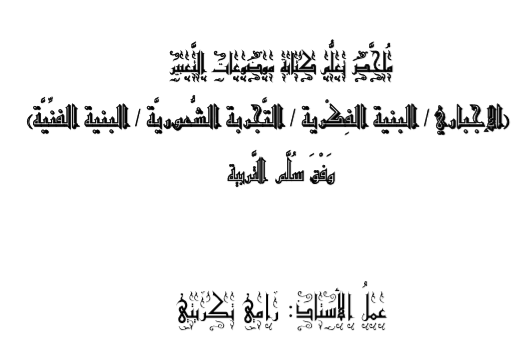 مُلخَّصُ تعلُّمِ كتابةِ موضوعاتِ التَّعبيرِ
(الإجباريّ / البنية الفِكْرية / التَّجربة الشُّعوريَّة / البنية الفنّيَّة)
وَفْقَ سُلَّم التَّربية
عملُ الأستاذ: رامي تكريتي